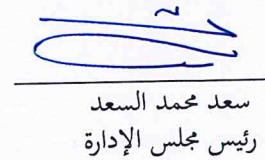 سعد محمد السعد
رئيس مجلس الإدارة